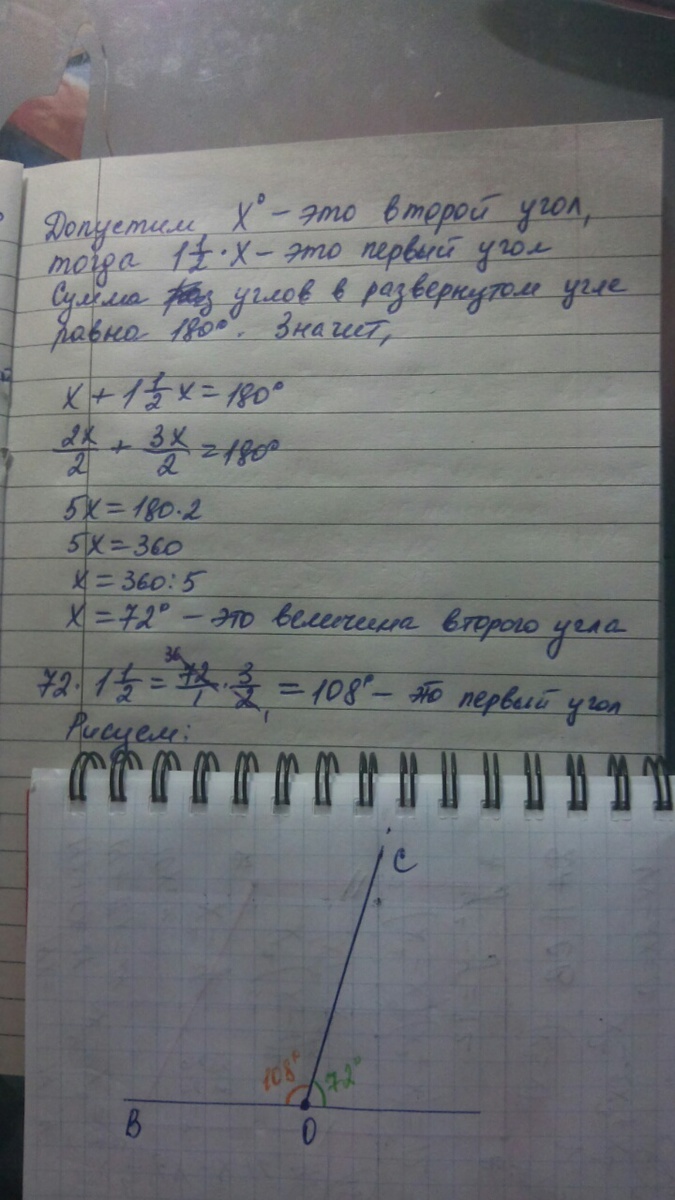 Допустим X° - это второй угол,
тогда 1 1/2 · X - это первый угол
Сумма углов в развернутом угле
равна 180°. Значит,
X + 1 1/2 X = 180°
2X/2 + 3X/2 = 180°
5X = 180·2
5X = 360
X = 360:5
X = 72° - это величина второго угла
72 · 1 1/2 = 72/1 · 3/2 = 108° - это первый угол
36
1
Рисуем:
C
108° 72°
B O